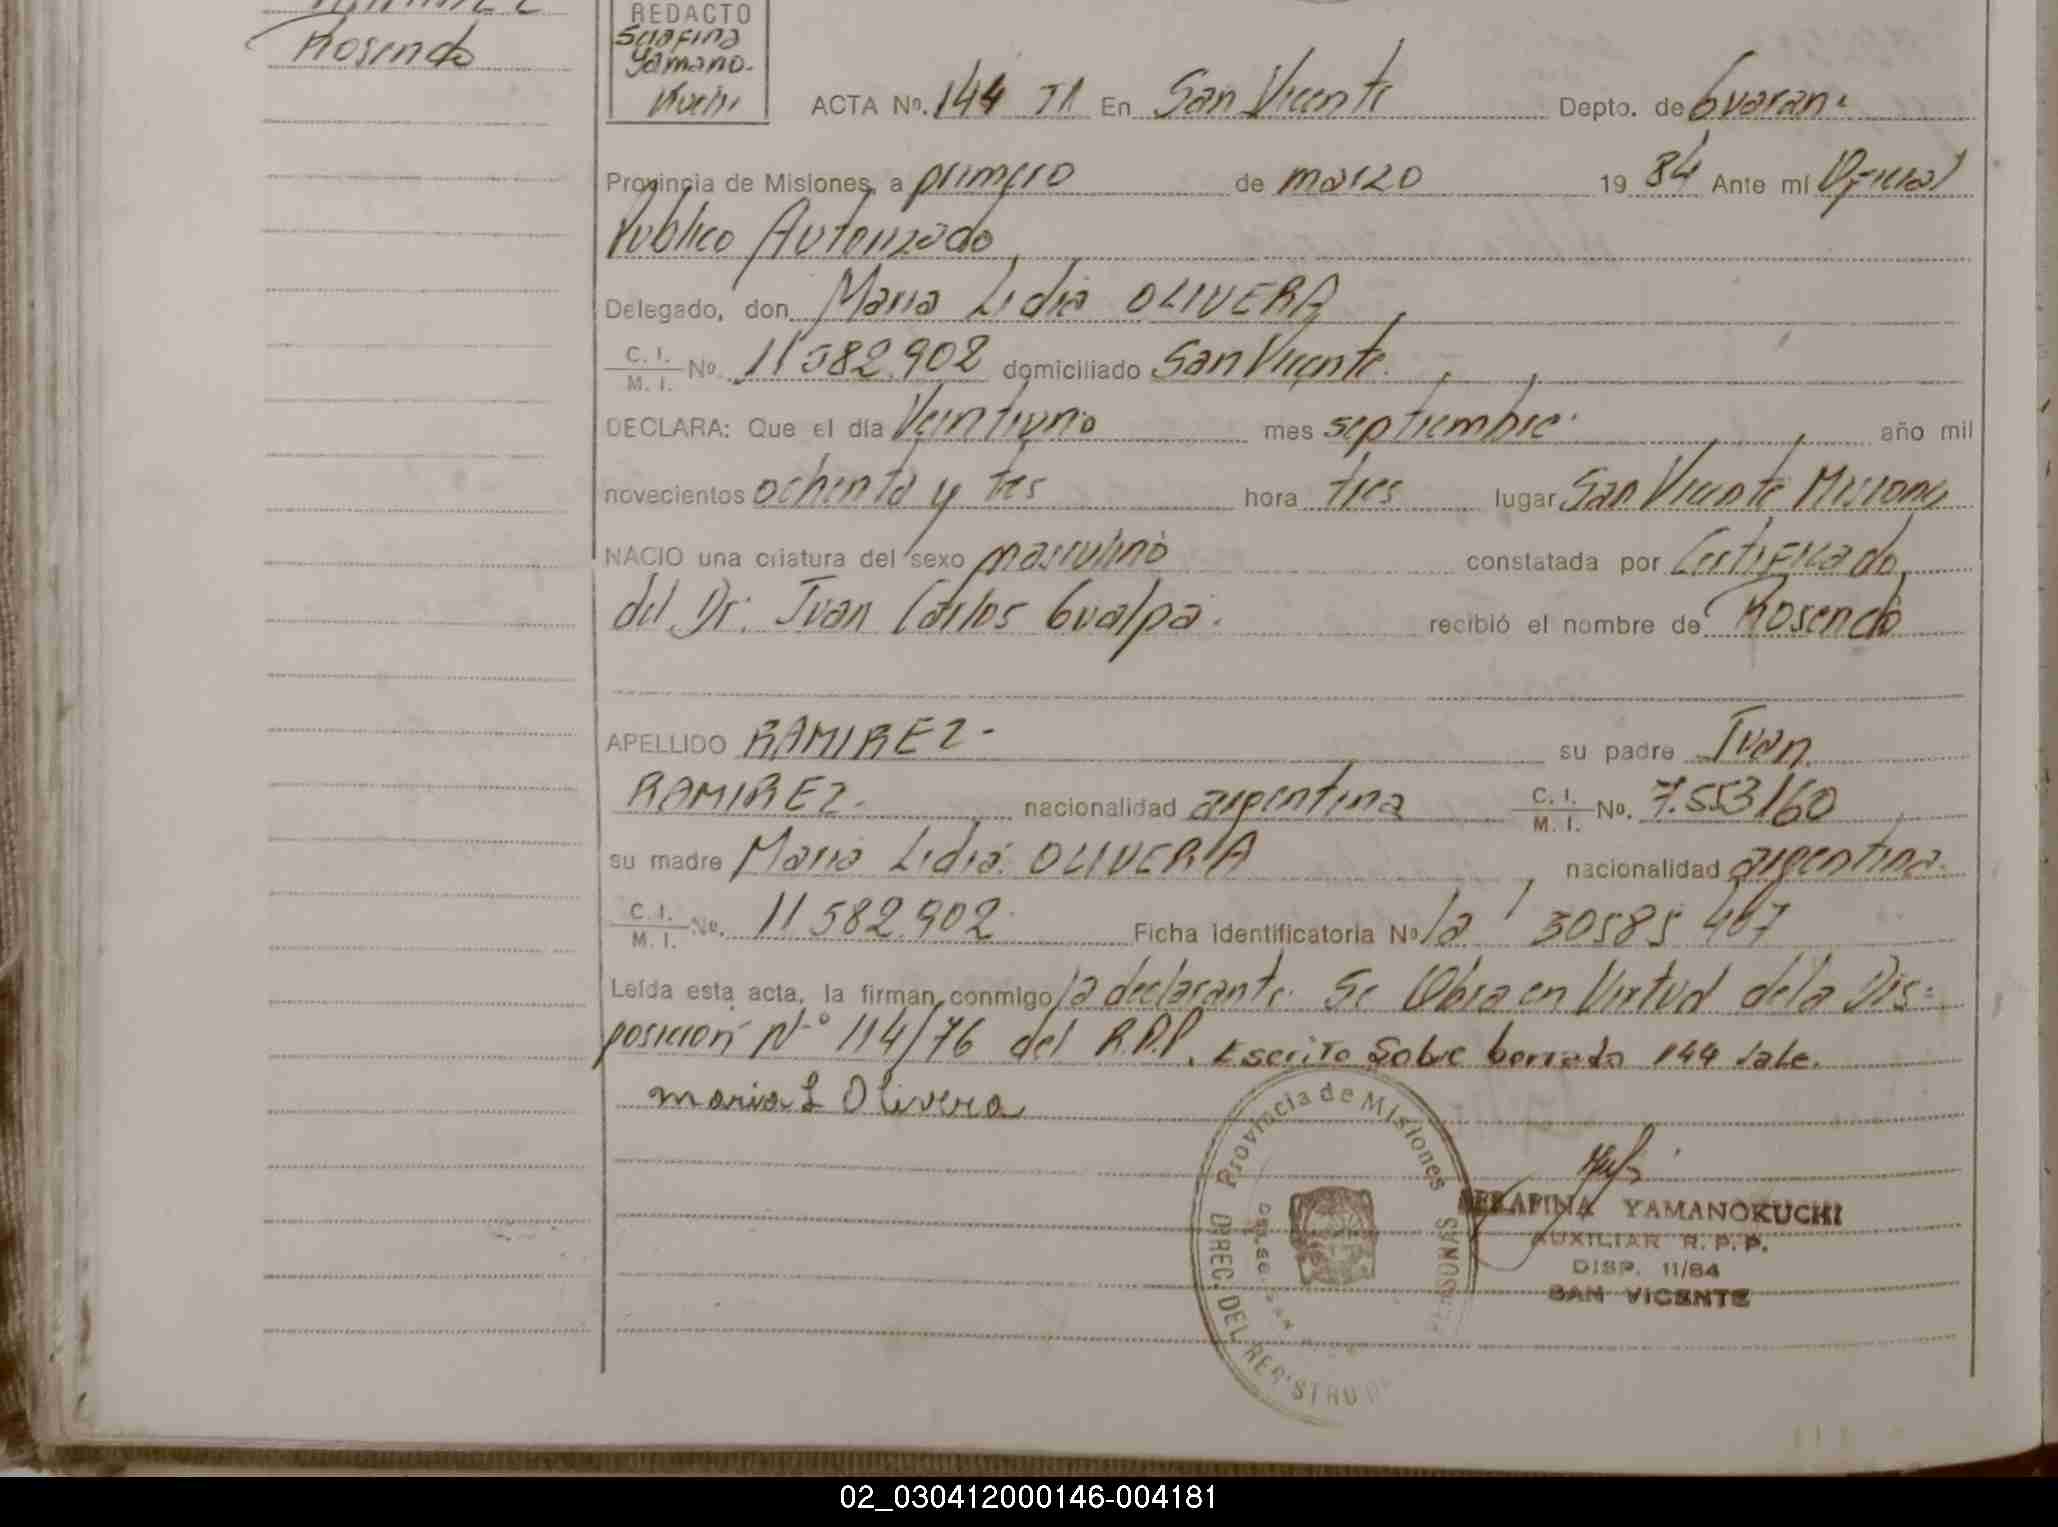 RAMIREZ
Rosendo
REDACTO
Serafina
Yamano-
Kuchi
ACTA Nº. 144 TI En San Vicente Depto. de Guarani
Provincia de Misiones, a primero de marzo 19 84 Ante mí Oficial
Publico Autorizado
Delegado, don Maria Lidia OLIVERA
C. I. / M. I. Nº. 11 582.902 domiciliado San Vicente.
DECLARA: Que el día Veintiuno mes septiembre. año mil
novecientos ochenta y tres hora tres lugar San Vicente Misiones
NACIO una criatura del sexo masculino constatada por Certificado
del Dr. Juan Carlos Gualpa. recibió el nombre de Rosendo
APELLIDO RAMIREZ- su padre Juan
RAMIREZ. nacionalidad argentina C. I. / M. I. Nº. 7.553160
su madre Maria Lidia OLIVERA nacionalidad argentina.
C. I. / M. I. Nº. 11 582.902 Ficha identificatoria Nº la 30585 407
Leída esta acta, la firman conmigo la declarante. Se Obra en Virtud de la Dis=
posición Nº 114/76 del R.P.P. Escrito Sobre borrado 144 Vale.
maria L Olivera
Provincia de Misiones
DIREC. DEL REGISTRO
SERAFINA YAMANOKUCHI
AUXILIAR R. P. P.
DISP. 11/84
SAN VICENTE
02_030412000146-004181